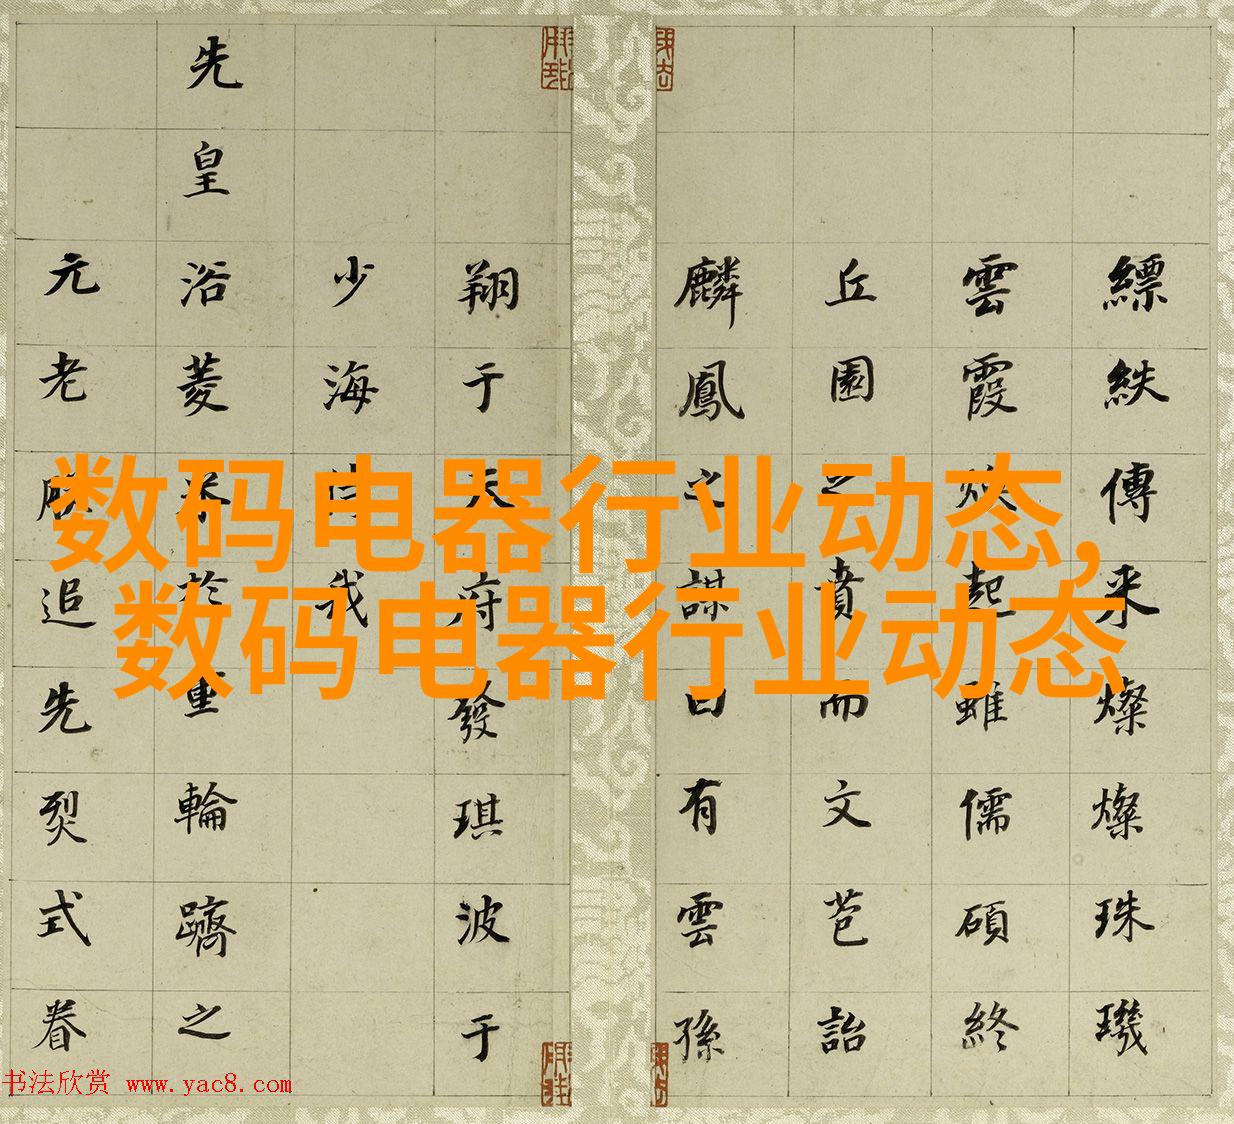 数码电器行业动态,
数码电器行业动态
縹紩傳来燦燦珠璣
雲霞焕起雖儒碩終
丘園之賁而文芭詒
麟鳳之謀曰有雲孫
翔于天府發琪波于
少海我
先皇浴菱於重輪躋之
元老追先烈式眷
书法欣赏 www.yac8.com